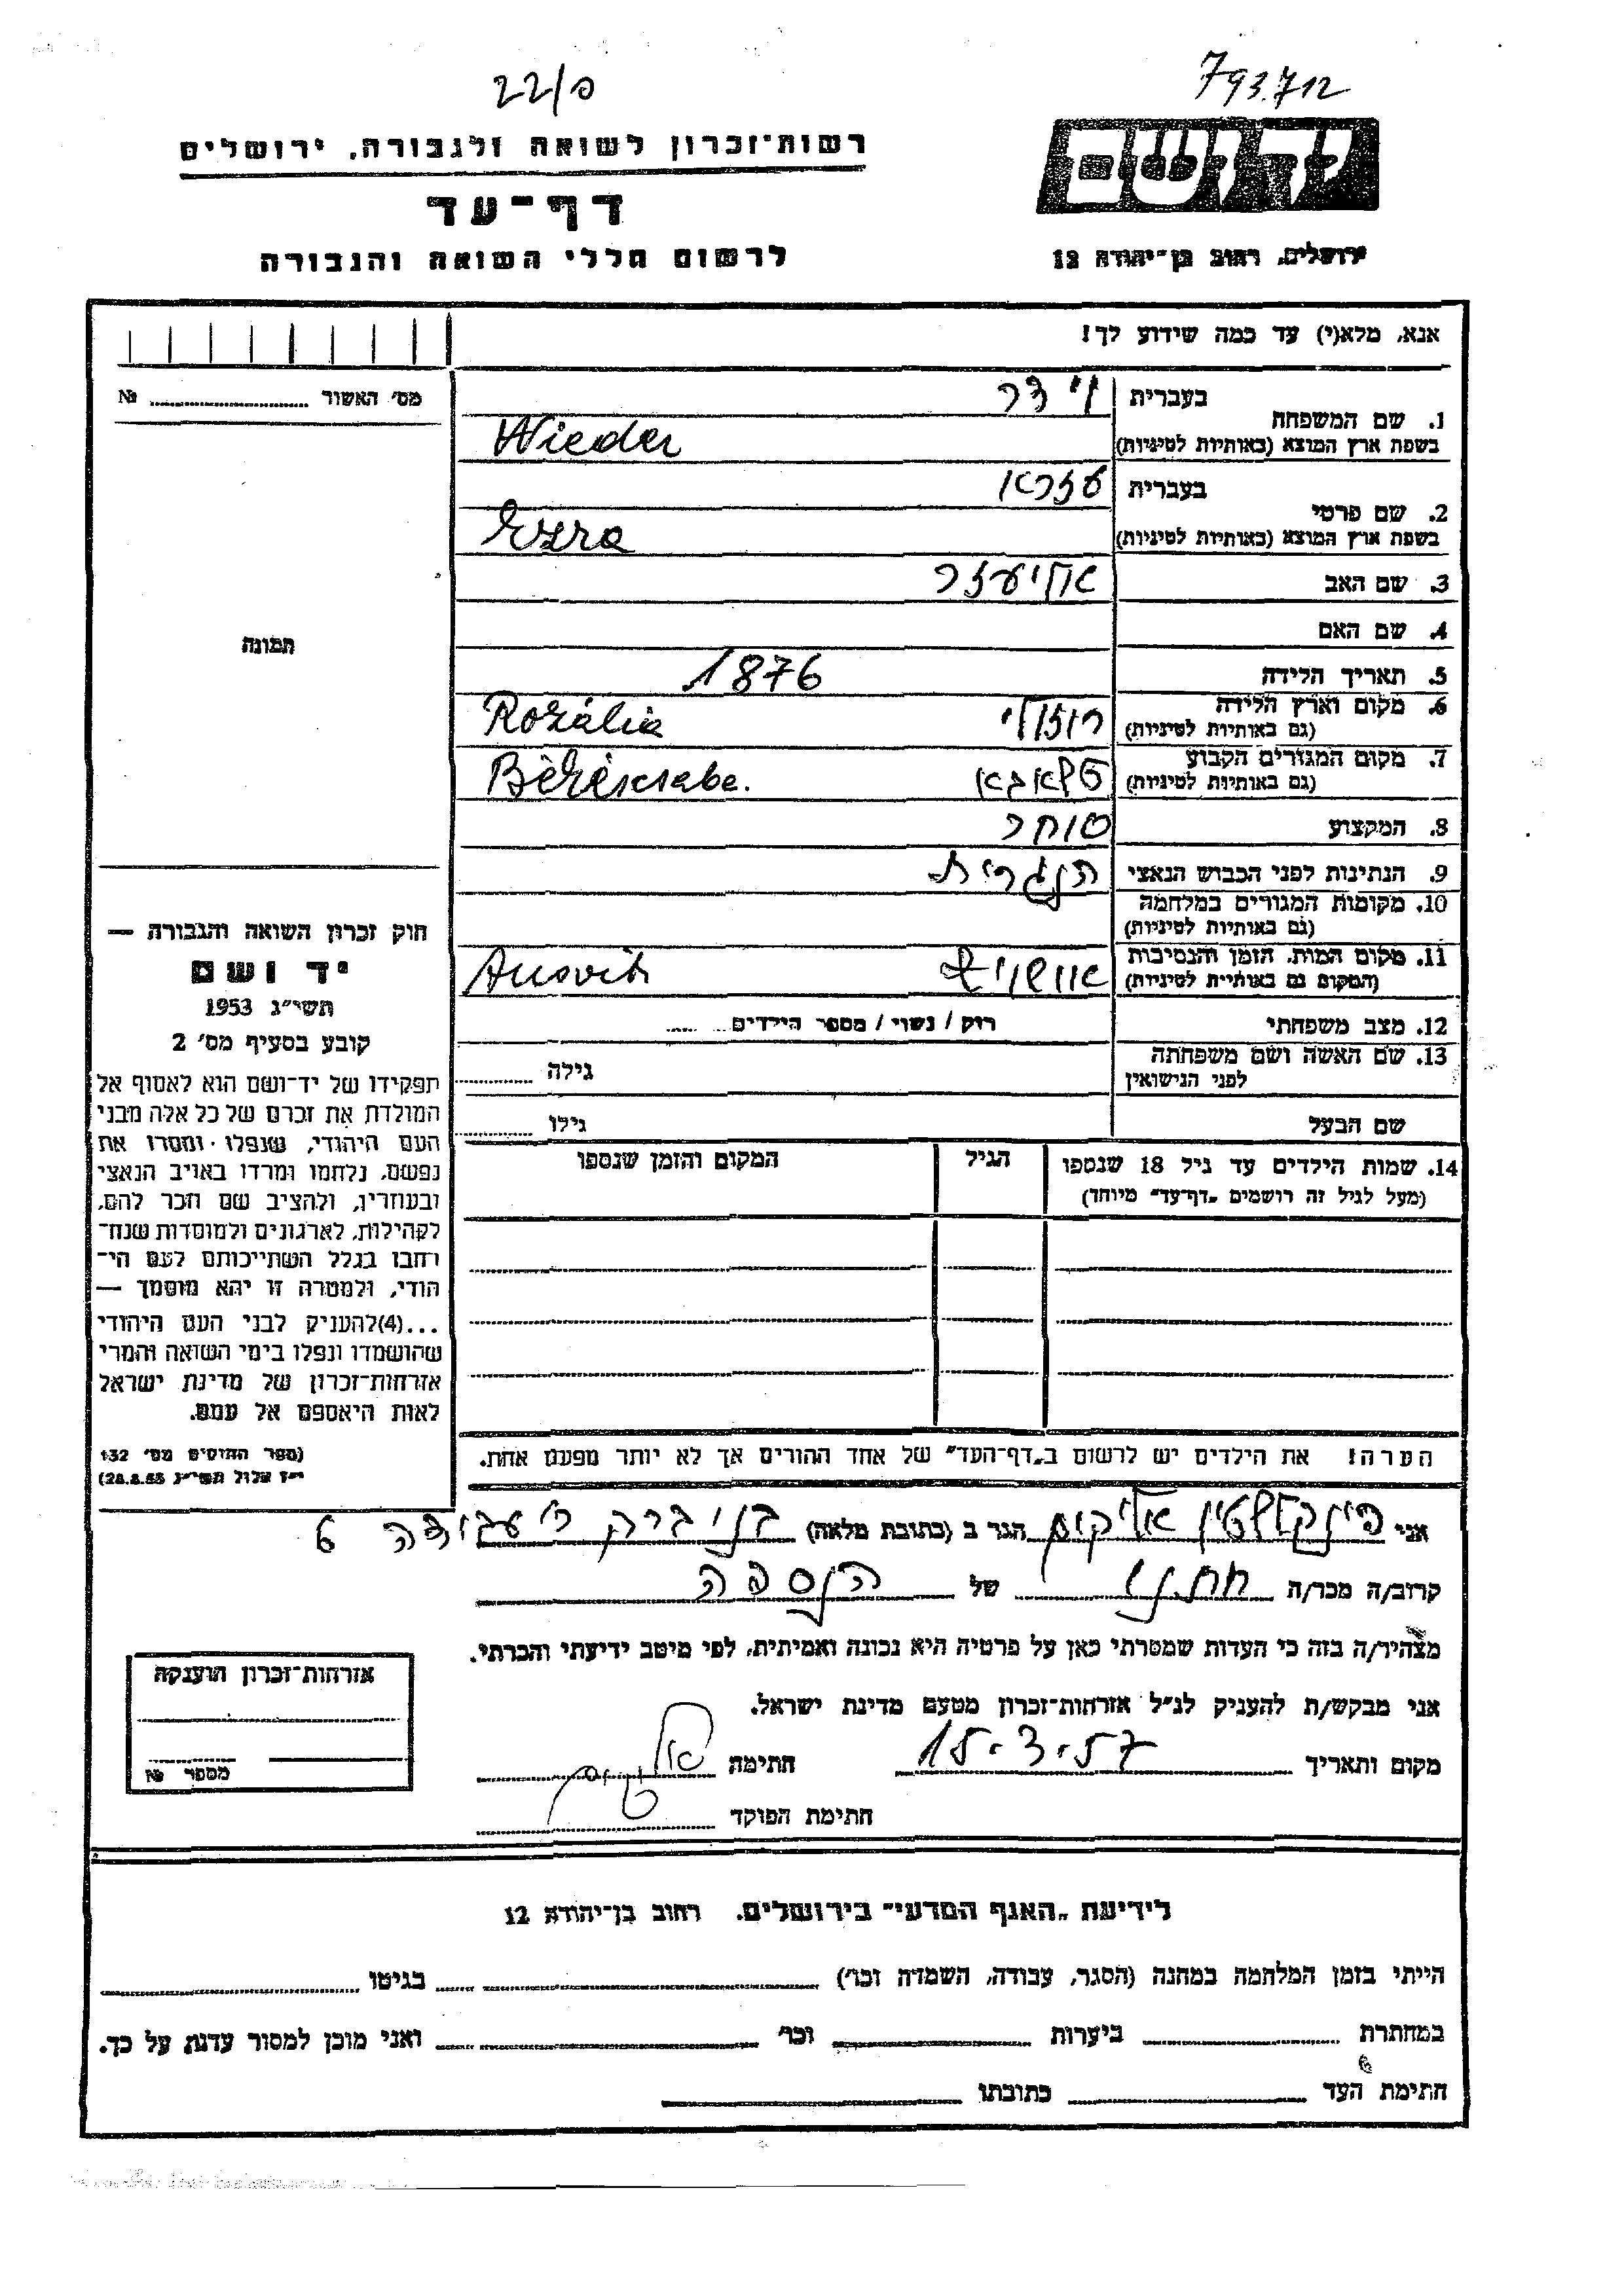 793.712
22/פ
יד ושם
ירושלים, רחוב בן־יהודה 12
רשות־זכרון לשואה ולגבורה, ירושלים
דף־עד
לרשום חללי השואה והגבורה
אנא, מלא(י) עד כמה שידוע לך!
מס' האשור № ........
תמונה
1. שם המשפחה בעברית וידר
בשפת ארץ המוצא (באותיות לטיניות) Wieder
2. שם פרטי בעברית עזרא
בשפת ארץ המוצא (באותיות לטיניות) Ezra
3. שם האב אליעזר
4. שם האם
5. תאריך הלידה 1876
6. מקום וארץ הלידה (גם באותיות לטיניות) רוזולי Rozália
7. מקום המגורים הקבוע (גם באותיות לטיניות)
8. המקצוע סוחר
9. הנתינות לפני הכבוש הנאצי הונגרית
10. מקומות המגורים במלחמה (גם באותיות לטיניות)
11. מקום המות, הזמן והנסיבות (המקום גם באותיות לטיניות) אושויץ Ausvitz
12. מצב משפחתי רוק / נשוי / מספר הילדים ........
13. שם האשה ושם משפחתה לפני הנישואין גילה ........
שם הבעל גילו ........
14. שמות הילדים עד גיל 18 שנספו הגיל המקום והזמן שנספו
(מעל לגיל זה רושמים „דף־עד״ מיוחד)
הערה! את הילדים יש לרשום ב„דף־העד״ של אחד ההורים אך לא יותר מפעם אחת.
חוק זכרון השואה והגבורה —
יד ושם
תשי״ג 1953
קובע בסעיף מס' 2
תפקידו של יד־ושם הוא לאסוף אל
המולדת את זכרם של כל אלה מבני
העם היהודי, שנפלו ומסרו את
נפשם, נלחמו ומרדו באויב הנאצי
ובעוזריו, ולהציב שם וזכר להם,
לקהילות, לארגונים ולמוסדות שנח־
רבו בגלל השתייכותם לעם הי־
הודי, ולמטרה זו יהא מוסמך —
...(4)להעניק לבני העם היהודי
שהושמדו ונפלו בימי השואה והמרי
אזרחות־זכרון של מדינת ישראל
לאות היאספם אל עמם.
(ספר החוקים מס' 132
י״ז אלול תשי״ג 28.8.53)
אני פינקלשטין אליקום הגר ב (כתובת מלאה) בני ברק ר' עבודה 6
קרוב/ה מכר/ה חתנו של הנספה
מצהיר/ה בזה כי העדות שמסרתי כאן על פרטיה היא נכונה ואמיתית, לפי מיטב ידיעתי והכרתי.
אני מבקש/ת להעניק לנ״ל אזרחות־זכרון מטעם מדינת ישראל.
מקום ותאריך 15.3.57 חתימה
חתימת הפוקד
אזרחות־זכרון הוענקה
מספר №
לידיעת „האגף המדעי״ בירושלים. רחוב בן־יהודה 12
הייתי בזמן המלחמה במחנה (הסגר, עבודה, השמדה וכר') ........ בגיטו ........
במחתרת ........ ביערות ........ וכר' ........ ואני מוכן למסור עדות על כך.
חתימת העד ........ כתובתו ........